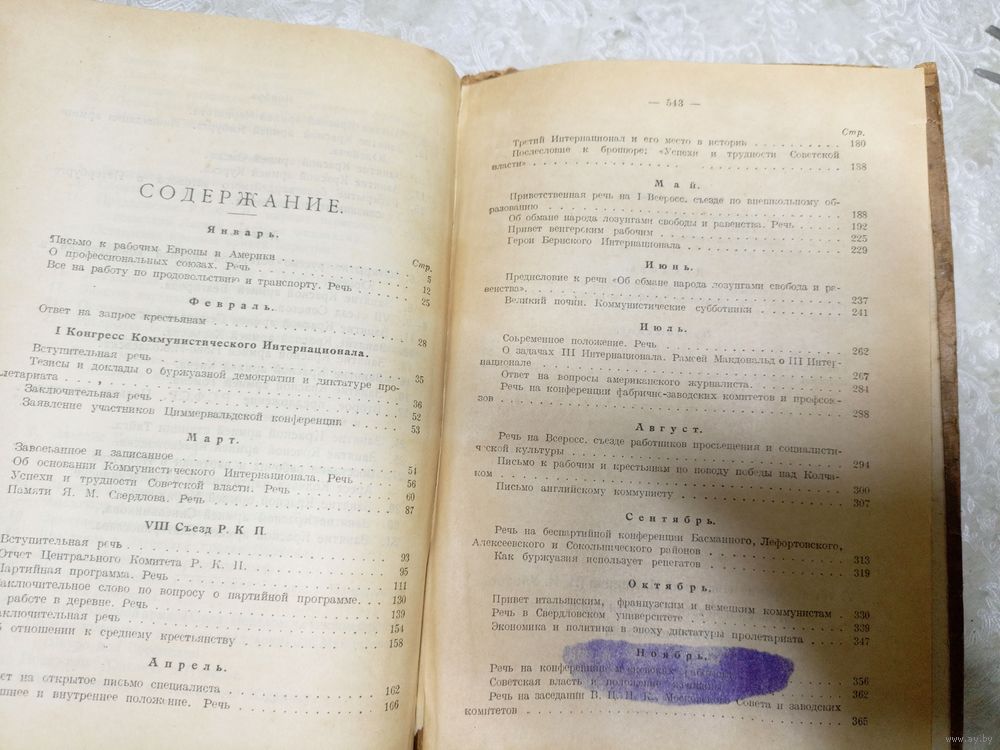 СОДЕРЖАНИЕ.
Январь.
Стр.
Письмо к рабочим Европы и Америки . . . 5
О профессиональных союзах. Речь . . . 12
Все на работу по продовольствию и транспорту. Речь . . . 25
Февраль.
Ответ на запрос крестьянам . . . 28
I Конгресс Коммунистического Интернационала.
Вступительная речь . . . 35
Тезисы и доклады о буржуазной демократии и диктатуре про-
летариата . . . 36
Заключительная речь . . . 52
Заявление участников Циммервальдской конференции . . . 53
Март.
Завоеванное и записанное . . . 54
Об основании Коммунистического Интернационала. Речь . . . 56
Успехи и трудности Советской власти. Речь . . . 60
Памяти Я. М. Свердлова. Речь . . . 87
VIII Съезд Р. К П.
Вступительная речь . . . 93
Отчет Центрального Комитета Р. К. П. . . . 95
Партийная программа. Речь . . . 111
аключительное слово по вопросу о партийной программе. . . 130
работе в деревне. Речь . . . 139
ключительная речь . . . 154
отношении к среднему крестьянству . . . 158
Апрель.
ет на открытое письмо специалиста . . . 162
шнее и внутреннее положение. Речь . . . 166
— 543 —
Стр.
Третий Интернационал и его место в истории . . . 180
Послесловие к брошюре: «Успехи и трудности Советской
власти» . . . 138
Май.
Приветственная речь на I Всеросс. съезде по внешкольному об-
разованию . . . 188
Об обмане народа лозунгами свободы и равенства. Речь . . . 192
Привет венгерским рабочим . . . 225
Герои Бернского Интернационала . . . 229
Июнь.
Предисловие к речи «Об обмане народа лозунгами свобода и ра-
венства». . . . 237
Великий почин. Коммунистические субботники . . . 241
Июль.
Современное положение. Речь . . . 262
О задачах III Интернационала. Рамсей Макдональд о III Интер-
национале . . . 267
Ответ на вопросы американского журналиста. . . . 284
Речь на конференции фабрично-заводских комитетов и профсою-
зов . . . 288
Август.
Речь на Всеросс. съезде работников просвещения и социалисти-
ческой культуры . . . 294
Письмо к рабочим и крестьянам по поводу победы над Колча-
ком . . . 300
Письмо английскому коммунисту . . . 307
Сентябрь.
Речь на беспартийной конференции Басманного, Лефортовского,
Алексеевского и Сокольнического районов . . . 313
Как буржуазия использует ренегатов . . . 319
Октябрь.
Привет итальянским, французским и немецким коммунистам . . 330
Речь в Свердловском университете . . . 339
Экономика и политика в эпоху диктатуры пролетариата . . . 347
Ноябрь.
Речь на конференции . . . 356
Советская власть и положение . . . 362
Речь на заседании В. Ц. И. К., Московского Совета и заводских
комитетов . . . 365
www.ay.by